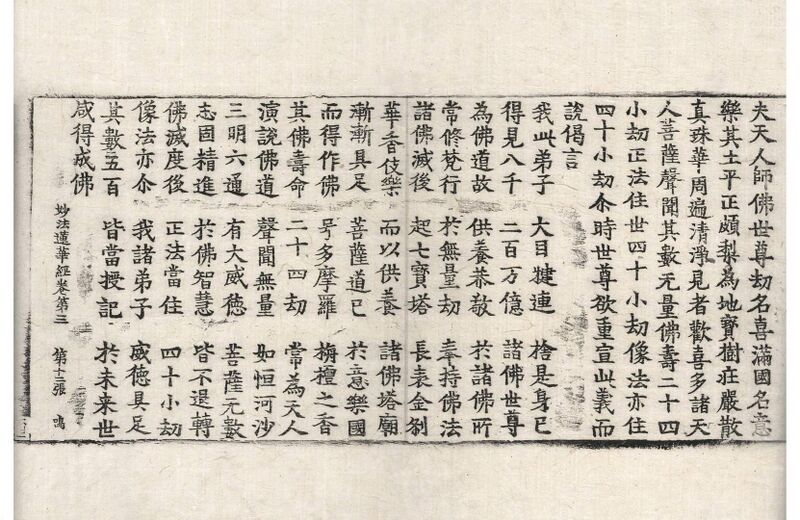 夫天人師佛世尊劫名喜滿國名意
樂其土平正頗梨為地寶樹莊嚴散
真珠華周遍清淨見者歡喜多諸天
人菩薩聲聞其數无量佛壽二十四
小劫正法住世四十小劫像法亦住
四十小劫尒時世尊欲重宣此義而
說偈言
我此弟子 大目揵連 捨是身已
得見八千 二百万億 諸佛世尊
為佛道故 供養恭敬 於諸佛所
常修梵行 於無量劫 奉持佛法
諸佛滅後 起七寶塔 長表金剎
華香伎樂 而以供養 諸佛塔廟
漸漸具足 菩薩道已 於意樂國
而得作佛 号多摩羅 栴檀之香
其佛壽命 二十四劫 常為天人
演說佛道 聲聞無量 如恒河沙
三明六通 有大威德 菩薩元數
志固精進 於佛智慧 皆不退轉
佛滅度後 正法當住 四十小劫
像法亦尒 我諸弟子 威德具足
其數五百 皆當授記 於未来世
咸得成佛
妙法蓮華經卷第三 第十三張 鳴